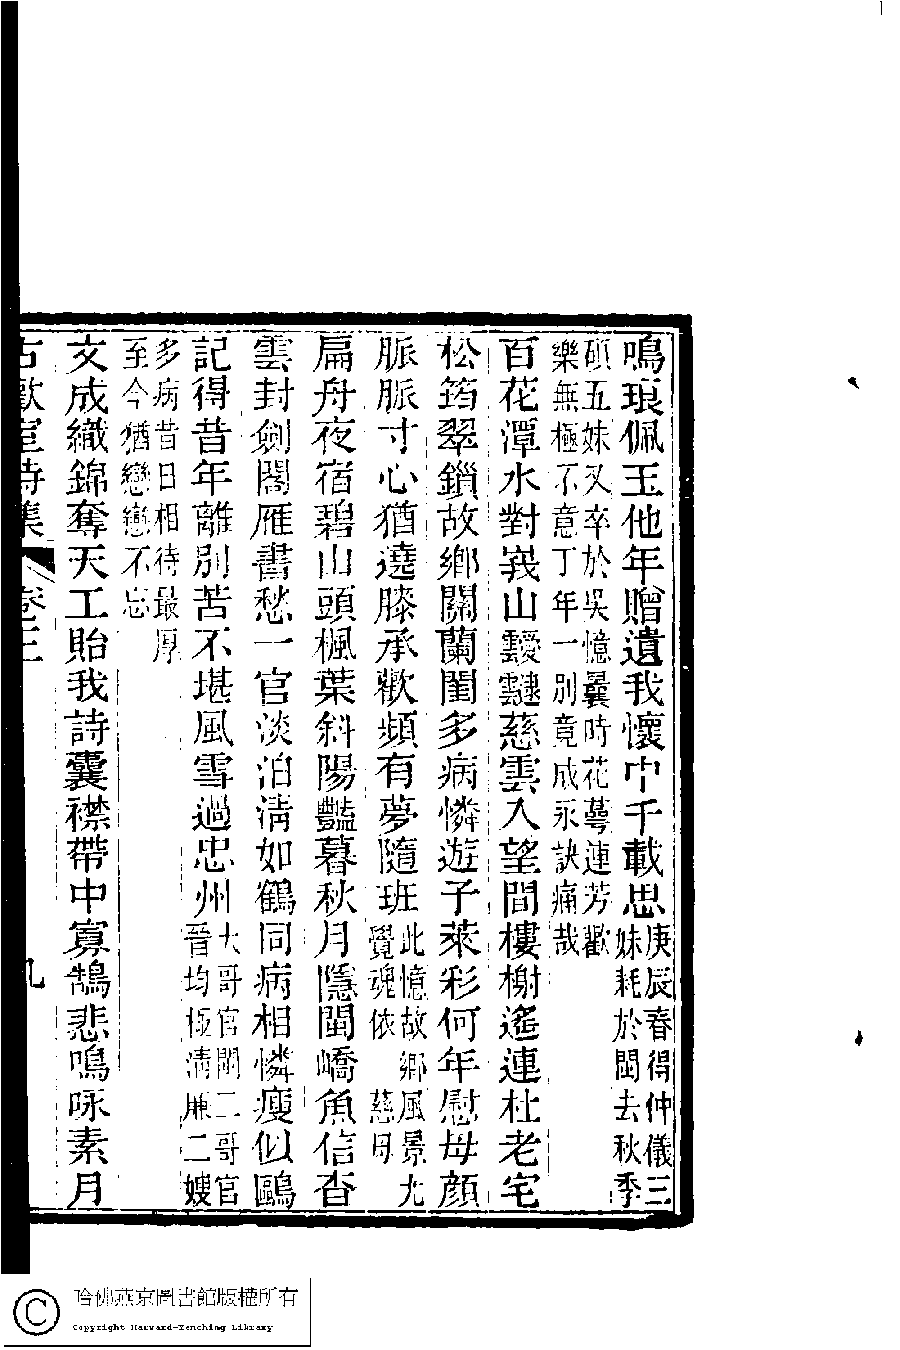 鳴琅佩玉他年贈遺我懷中千載思
庚辰春得仲儀三
妹耗於閩去秋季
碩五妹又卒於吳憶曩時花萼連芳歡
樂無極不意丁年一別竟成永訣痛哉
百花潭水對峩山靉靆慈雲入望間樓榭遙連杜老宅
松筠翠鎖故鄉關蘭閨多病憐遊子萊彩何年慰母顏
脈脈寸心猶遶膝承歡頻有夢隨班
此憶故鄉風景尤
覺魂依 慈母
扁舟夜宿碧山頭楓葉斜陽豔暮秋月隱閩嶠魚信杳
雲封劍閣雁書愁一官淡泊清如鶴同病相憐瘦似鷗
記得昔年離別苦不堪風雪過忠州
大哥官閩二哥官
晉均極清廉二嫂
多病昔日相待最厚
至今猶戀戀不忘
文成織錦奪天工貽我詩囊襟帶中寡鵠悲鳴咏素月
古歡室詩集 卷三 九
哈佛燕京圖書館版權所有
Copyright Harvard-Yenching Library